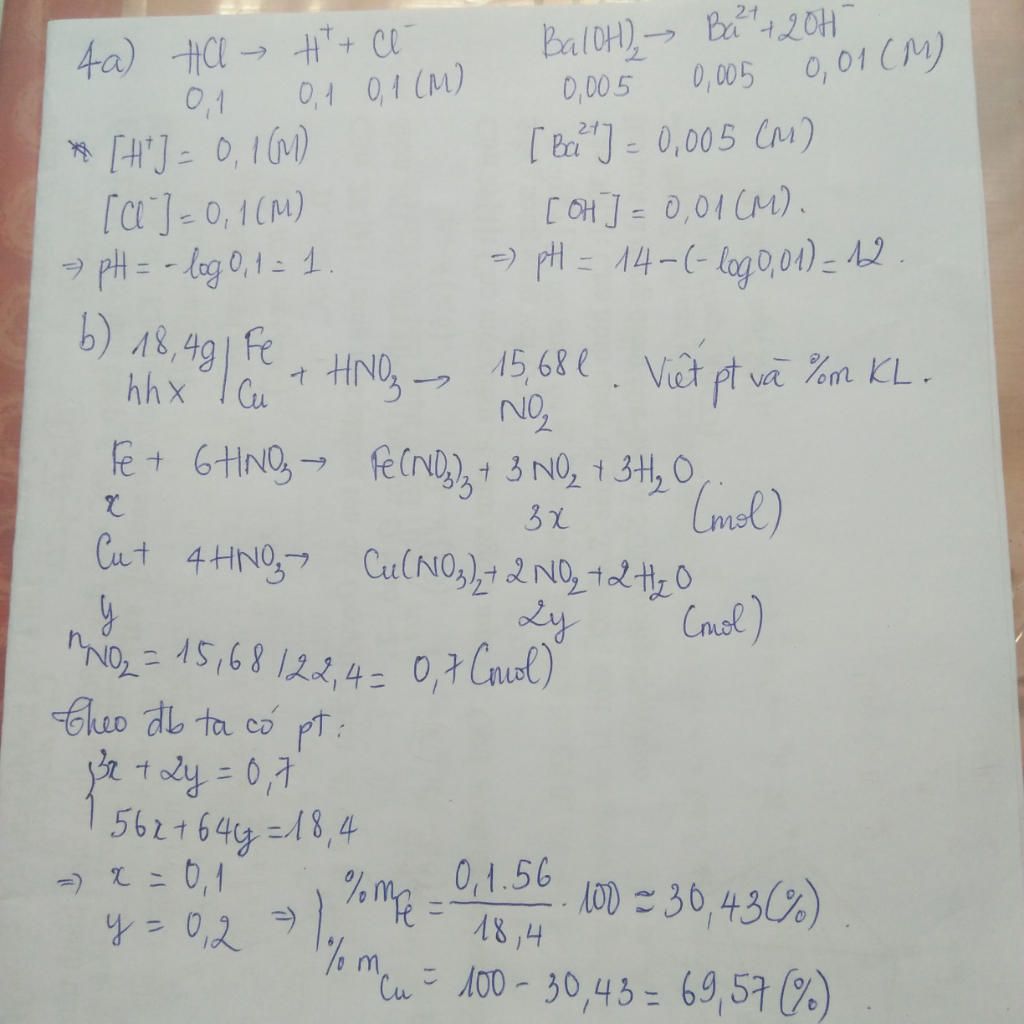 4a) HCl → H⁺ + Cl⁻    Ba(OH)₂ → Ba²⁺ + 2OH⁻
0,1    0,1    0,1 (M)    0,005    0,005    0,01 (M)
[H⁺] = 0,1 (M)    [Ba²⁺] = 0,005 (M)
[Cl⁻] = 0,1 (M)    [OH⁻] = 0,01 (M).
⇒ pH = -log0,1 = 1.    ⇒ pH = 14 - (-log0,01) = 12.
b) 18,4g hhx | Fe Cu + HNO₃ → 15,68l NO₂. Viết pt và %m KL.
Fe + 6HNO₃ → Fe(NO₃)₃ + 3NO₂ + 3H₂O
x    3x    (mol)
Cu + 4HNO₃ → Cu(NO₃)₂ + 2NO₂ + 2H₂O
y    2y    (mol)
nNO₂ = 15,68 / 22,4 = 0,7 (mol)
Theo đb ta có pt:
3x + 2y = 0,7
56x + 64y = 18,4
⇒ x = 0,1
y = 0,2
⇒ %mFe = 0,1.56 / 18,4 . 100 ≈ 30,43 (%).
%mCu = 100 - 30,43 = 69,57 (%).